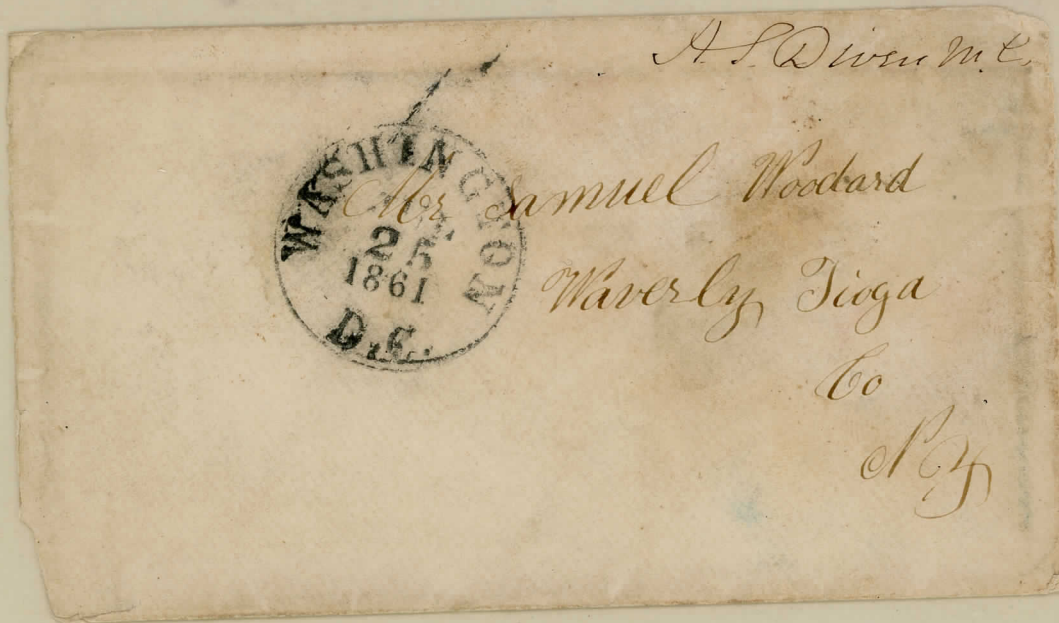 A. S. Diven M. C.
WASHINGTON
25
1861
D.C.
Mr Samuel Woodard
Waverly Tioga
Co
N Y